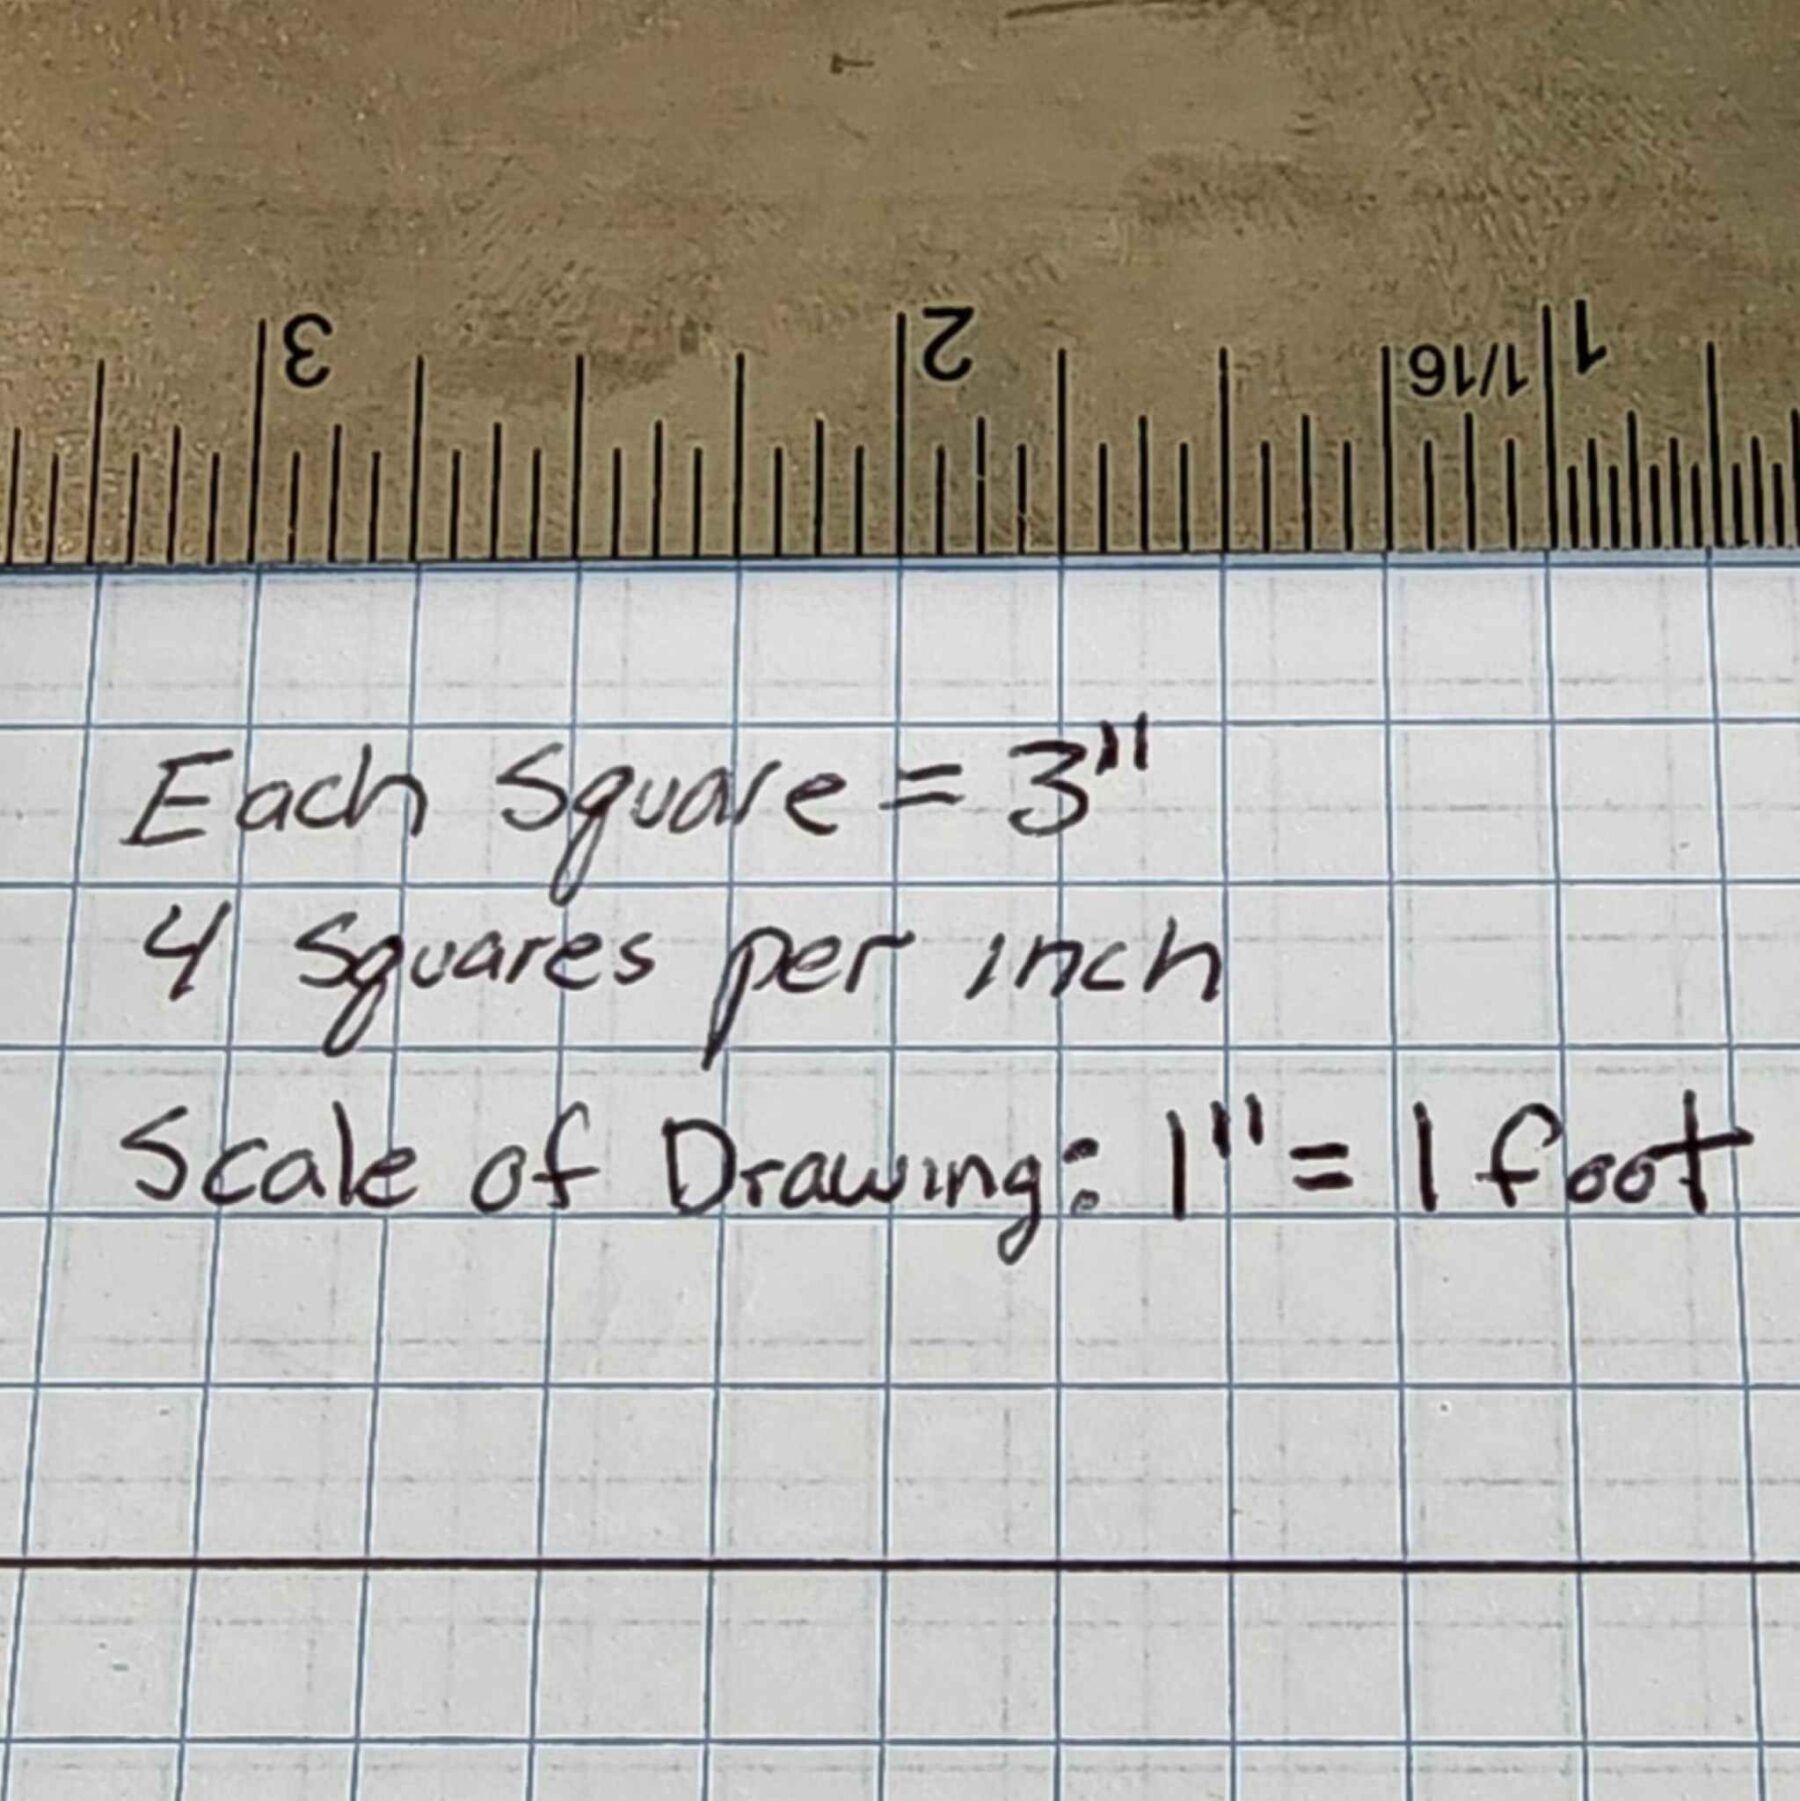 3 2 1/16 1
Each Square = 3"
4 Squares per inch
Scale of Drawing: 1" = 1 foot